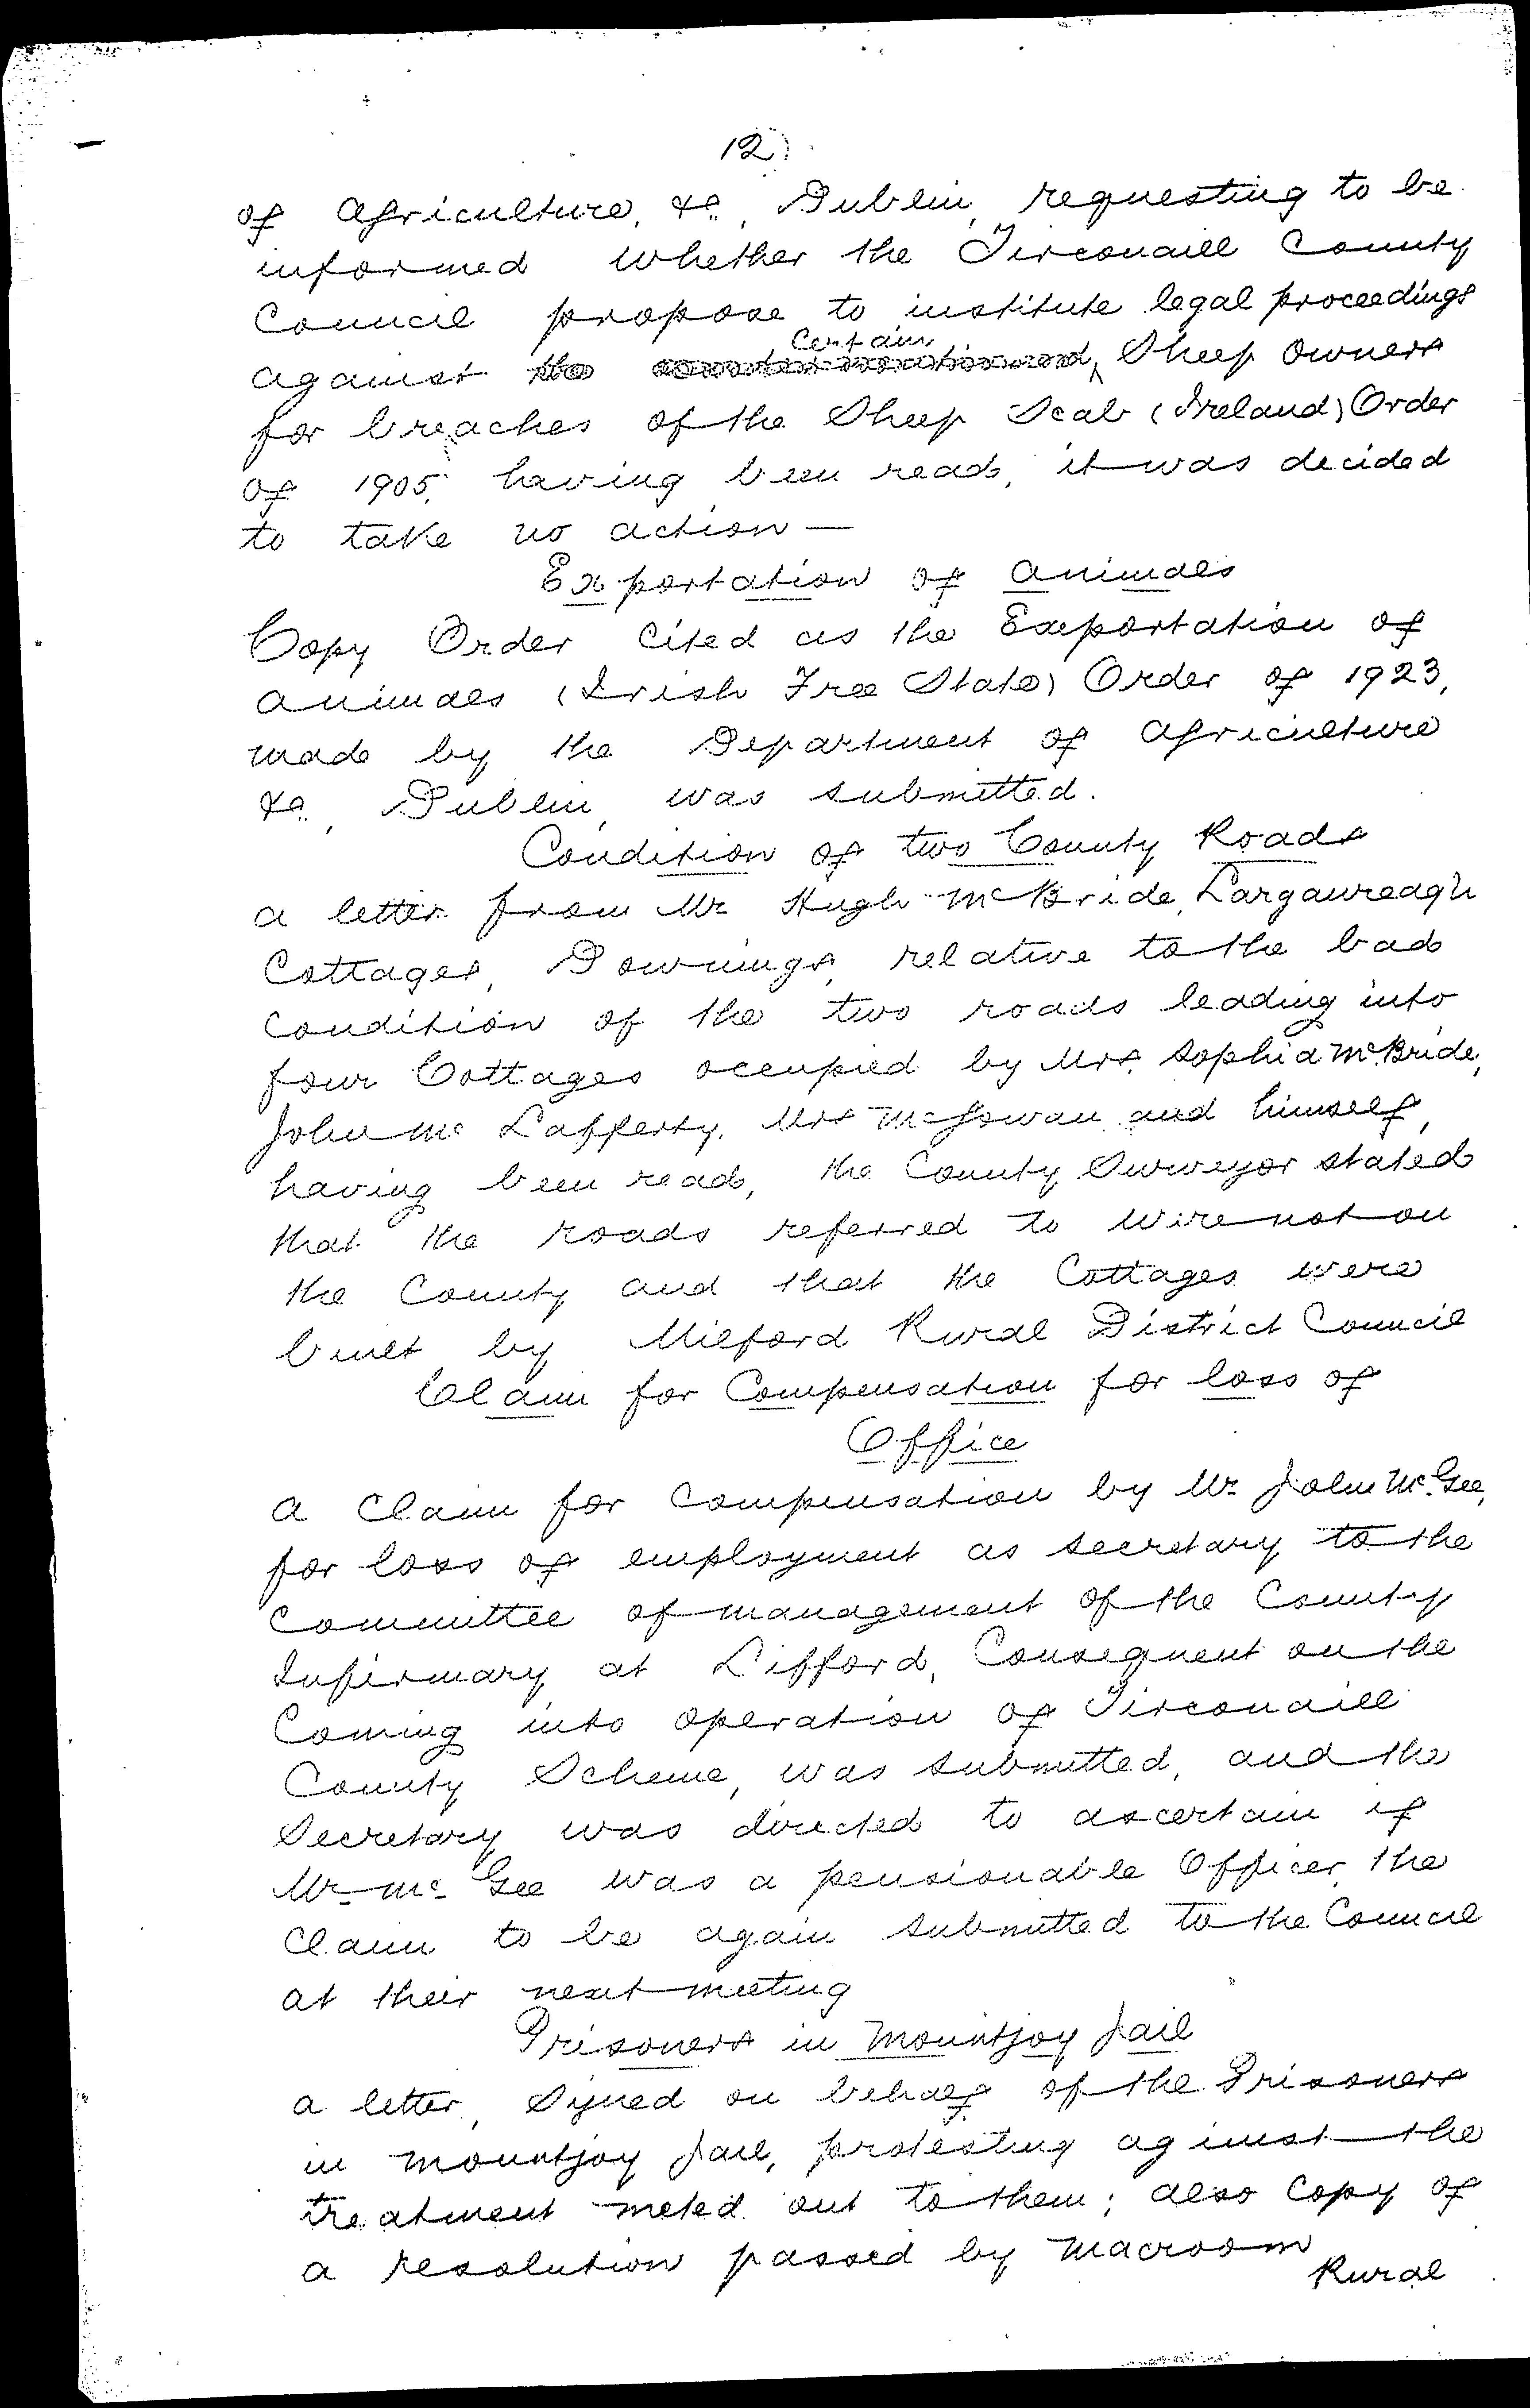 12)
of Agriculture, &c., Dublin, requesting to be
informed whether the Tirconaill County
Council propose to institute legal proceedings
Certain
against the Sheep Owners
for breaches of the Sheep Scab (Ireland) Order
of 1905, having been read, it was decided
to take no action —
Exportation of Animals
Copy Order cited as the Exportation of
Animals (Irish Free State) Order of 1923,
made by the Department of Agriculture
&c., Dublin, was submitted.
Condition of two County Roads
A letter from Mr Hugh McBride, Largaureagh
Cottages, Downings, relative to the bad
condition of the two roads leading into
four Cottages occupied by Mrs. Sophia McBride,
John Mc Lafferty, Mrs McGowan and himself,
having been read, the County Surveyor stated
that the roads referred to were not on
the County and that the Cottages were
built by Milford Rural District Council
Claim for Compensation for loss of
Office
A Claim for Compensation by Mr. John McGee,
for loss of employment as secretary to the
Committee of management of the County
Infirmary at Lifford, Consequent on the
Coming into operation of Tirconaill
County Scheme, was submitted, and the
Secretary was directed to ascertain if
Mr. Mc Gee was a pensionable Officer, the
Claim to be again submitted to the Council
at their next meeting
Prisoners in Mountjoy Jail
A letter, signed on behalf of the Prisoners
in Mountjoy Jail, protesting against the
treatment meted out to them; also copy of
a resolution passed by Macroom
Rural